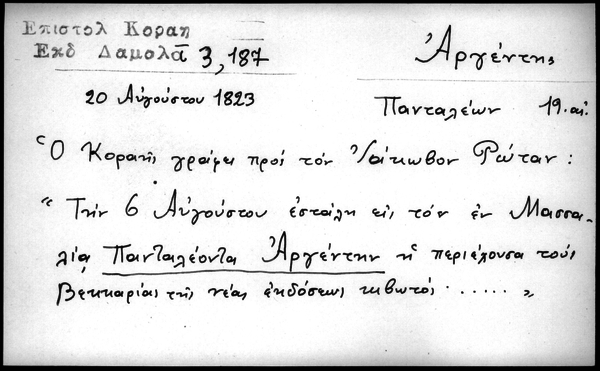 Επιστολ Κοραη
Εκδ Δαμολᾶ 3, 187
Ἀργέντης
20 Αὐγούστου 1823
Πανταλέων 19. αἰ.
Ὁ Κοραῆς γράφει πρὸς τὸν Ἰάκωβον Ρώταν :
" Τὴν 6 Αὐγούστου ἐστάλη εἰς τὸν ἐν Μασσα-
λίᾳ Πανταλέοντα Ἀργέντην ἡ περιέχουσα τοὺς
Βεκκαρίας τῆς νέας ἐκδόσεως κιβωτός ...... "